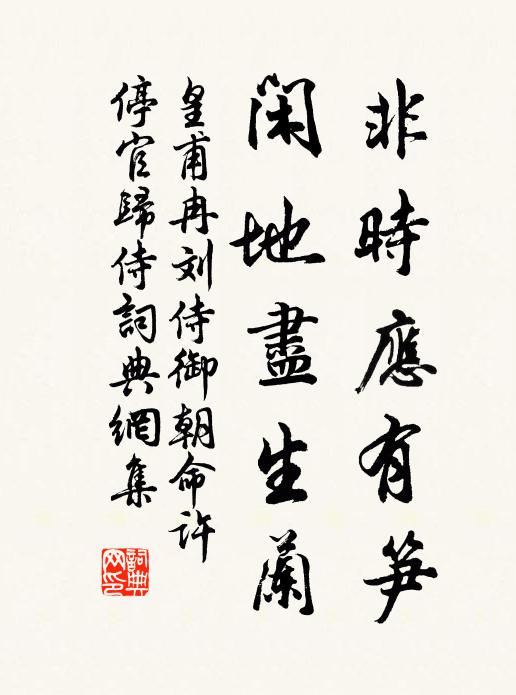 非時應有笋
閑地盡生蘭
皇甫冉刘侍御朝命許
停官歸侍詞典網集
詞典网印